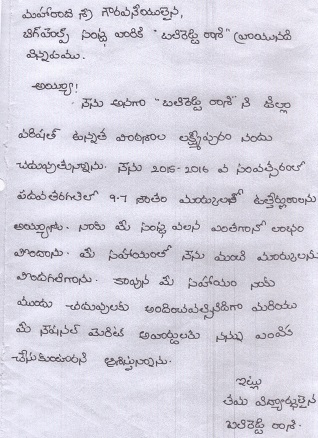 మహారాజశ్రీ గౌరవనీయులైన,
బిగ్‌హెల్ప్ సంస్థ వారికి "బలిరెడ్డి రాణి" వ్రాయునది
విన్నపము.
అయ్యా!
నేను అనగా "బలిరెడ్డి రాణి" ని జిల్లా
పరిషత్ ఉన్నత పాఠశాల లక్ష్మీపురం నందు
చదువుతున్నాను. నేను 2015-2016 వ సంవత్సరంలో
పదవతరగతిలో 9.7 శాతం మార్కులతో ఉత్తీర్ణురాలను
అయ్యాను. నాకు మీ సంస్థ వలన ఎంతగానో లాభం
పొందాను. మీ సహాయంతో నేను మంచి మార్కులను
పొందగలిగాను. కావున మీ సహాయం నాకు
ముందు చదువులకు అందించవలసినదిగా మరియు
మీ నేషనల్ మెరిట్ అవార్డులకు నన్ను ఎంపిక
చేసుకుంటారని ఆశిస్తున్నాను.
ఇట్లు
తమ విద్యార్థులైన
బలిరెడ్డి రాణి.